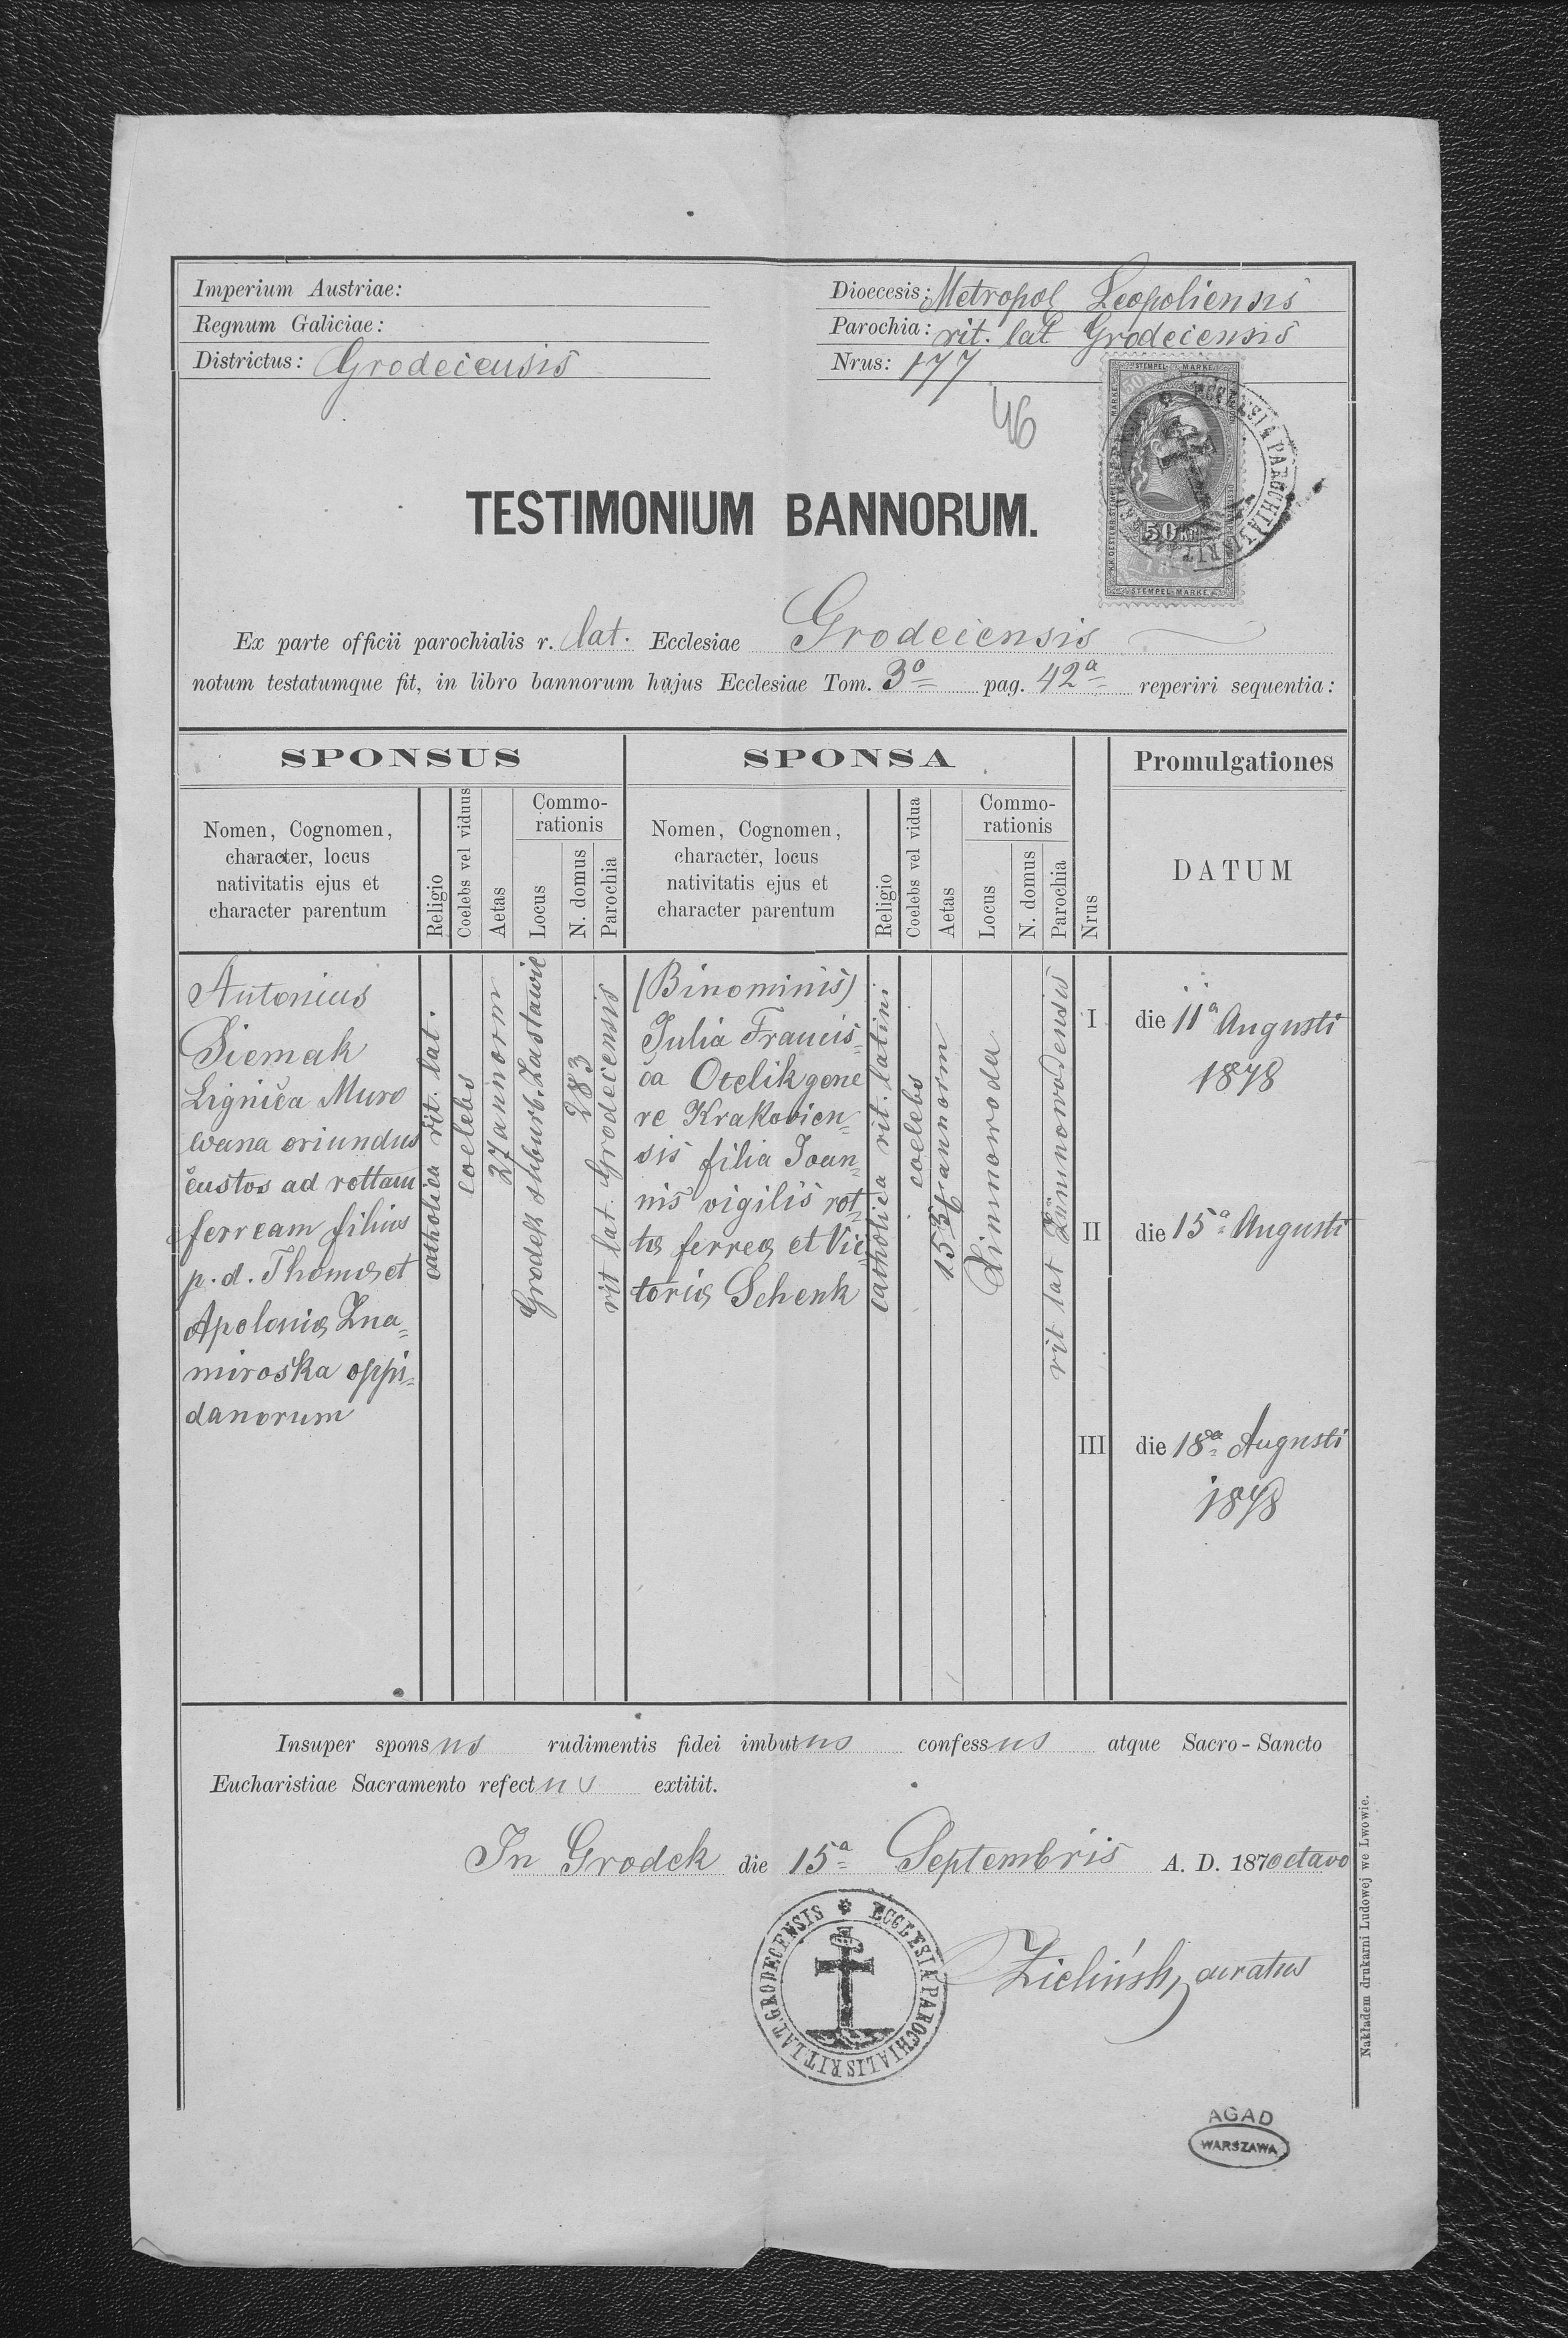 Imperium Austriae:
Regnum Galiciae:
Districtus: Grodecensis
Dioecesis: Metropol Leopoliensis
Parochia: rit. lat Grodecensis
Nrus: 177
46
STEMPEL MARKE
50 KR
STEMPEL-MARKE
TESTIMONIUM BANNORUM.
Ex parte officii parochialis r. lat. Ecclesiae Grodecensis
notum testatumque fit, in libro bannorum hujus Ecclesiae Tom. 3º pag. 42ª reperiri sequentia:
SPONSUS
Nomen, Cognomen,
character, locus
nativitatis ejus et
character parentum
Religio
Coelebs vel viduus
Aetas
Commo-
rationis
Locus
N. domus
Parochia
SPONSA
Nomen, Cognomen,
character, locus
nativitatis ejus et
character parentum
Religio
Coelebs vel vidua
Aetas
Commo-
rationis
Locus
N. domus
Parochia
Nrus
Promulgationes
DATUM
Antonius
Siemak
Lignica Muro
wana oriundus
custos ad rottam
ferream filius
p. d. Thomæ et
Apoloniæ Zna=
miroska oppi=
danorum
catholica rit. lat.
coelebs
27 annorm
Grodek suburb. Zastawie
283
rit lat. Grodecensis
(Binominis)
Julia Francis=
ca Otelik gene
re Krakovien=
sis filia Joan=
nis vigilis rot=
tæ ferreæ et Vic=
toriæ Schenk
catholica rit. latini
coelebs
annorm
Zimnowoda
rit lat Zimnowodensis
I die 11ª Augusti
1878
II die 15ª Augusti
III die 18ª Augusti
1878
Insuper sponsus rudimentis fidei imbutus confessus atque Sacro-Sancto
Eucharistiae Sacramento refectus extitit.
In Grodek die 15ª Septembris A. D. 187octavo
ECCLESIA PAROCHIALIS RIT. LAT. GRODECENSIS
Zieliński curatus
Nakładem drukarni Ludowej we Lwowie.
AGAD
WARSZAWA